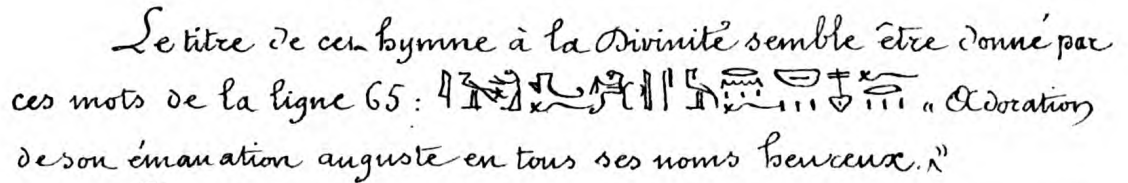 Le titre de cet hymne à la Divinité semble être donné par
ces mots de la ligne 65 : „ Adoration
de son émanation auguste en tous ses noms heureux. "